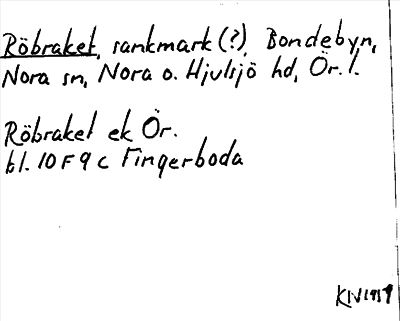 Röbraket, sankmark (?), Bondebyn,
Nora sn, Nora o. Hjulsjö hd, Ör. l.
Röbraket ek Ör.
bl. 10 F 9 c Fingerboda